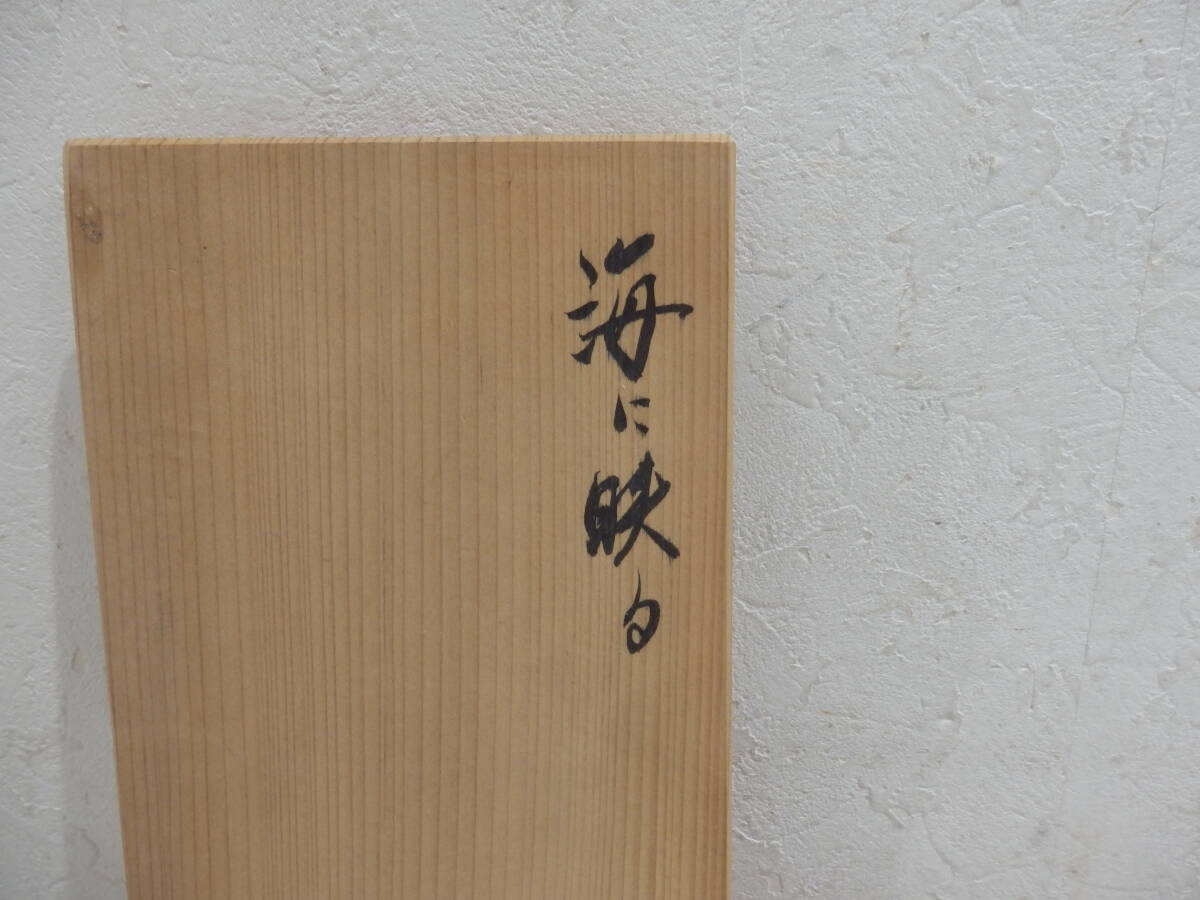 海に映る